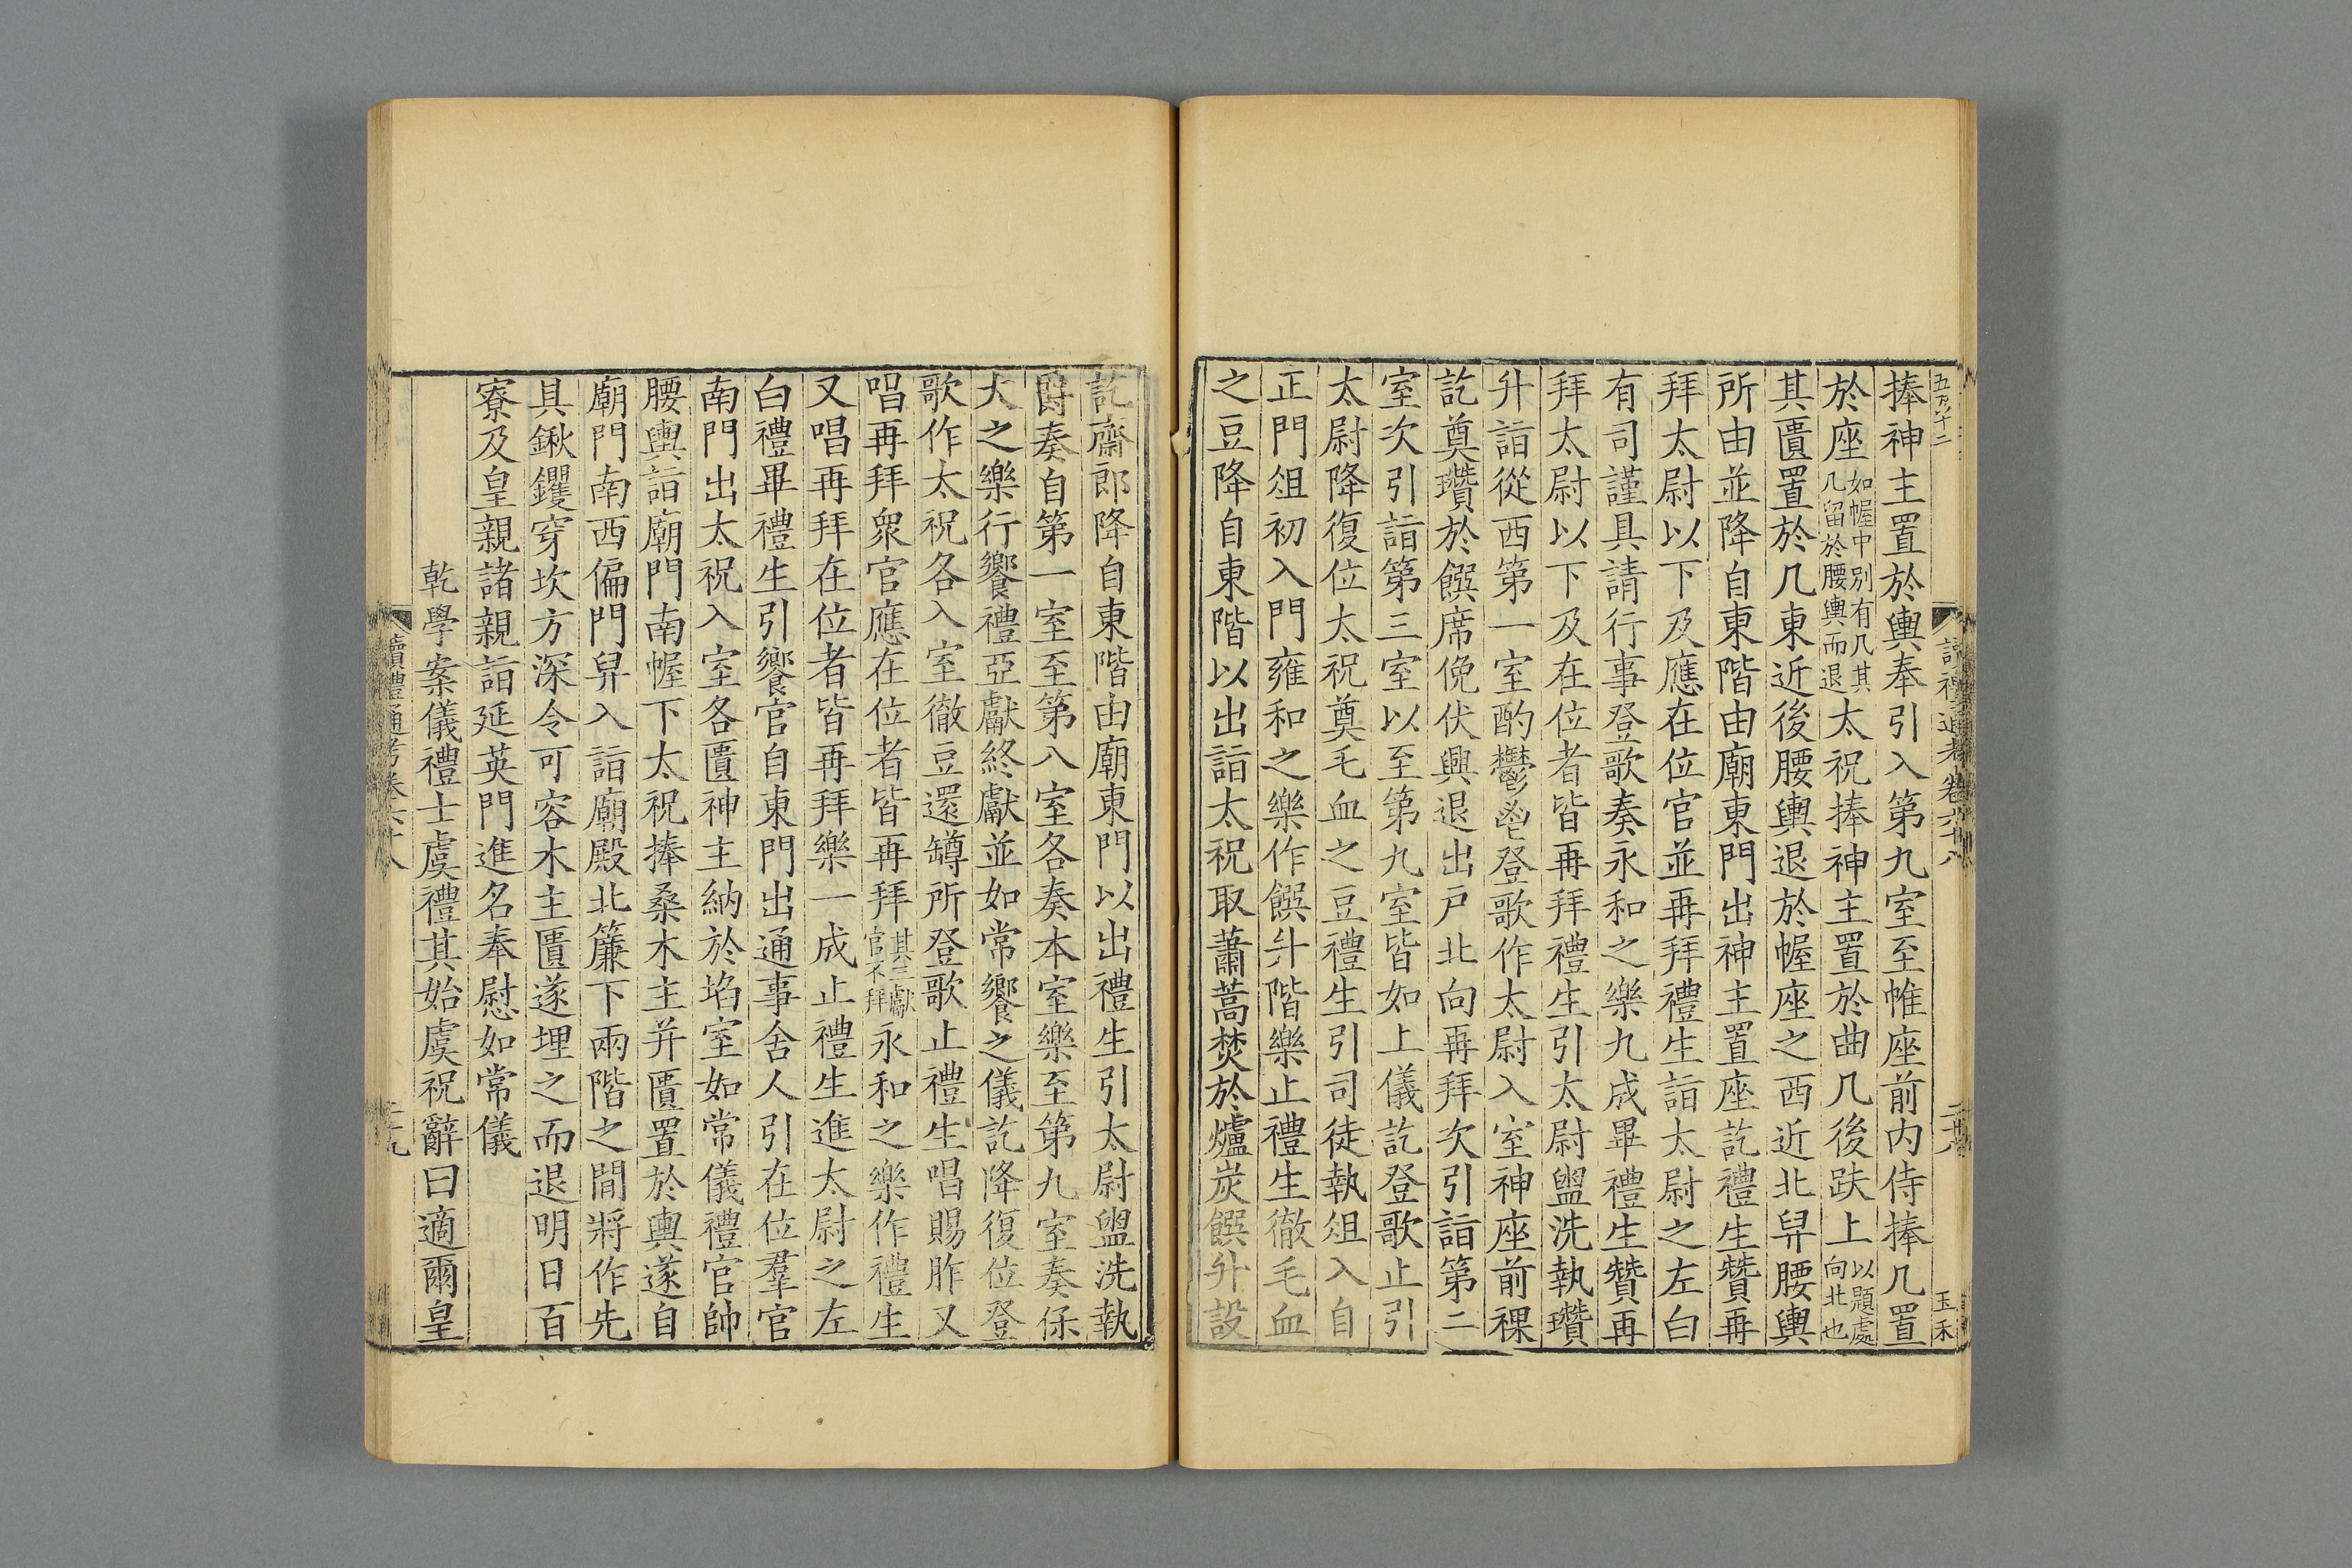 捧神主置於輿奉引入第九室至帷座前内侍捧几置
於座如幄中别有几其几留於腰輿而退太祝捧神主置於曲几後趺上以題處向北也
其匱置於几東近後腰輿退於幄座之西近北舁腰輿
所由並降自東階由廟東門出神主置座訖禮生贊再
拜太尉以下及應在位官並再拜禮生詣太尉之左白
有司謹具請行事登歌奏永和之樂九成畢禮生贊再
拜太尉以下及在位者皆再拜禮生引太尉盥洗執瓚
升詣從西第一室酌鬱鬯登歌作太尉入室神座前祼
訖奠瓚於饌席俛伏興退出戸北向再拜次引詣第二
室次引詣第三室以至第九室皆如上儀訖登歌止引
太尉降復位太祝奠毛血之豆禮生引司徒執俎入自
正門俎初入門雍和之樂作饌升階樂止禮生徹毛血
之豆降自東階以出詣太祝取蕭蒿焚於爐炭饌升設
訖齋郎降自東階由廟東門以出禮生引太尉盥洗執
爵奏自第一室至第八室各奏本室樂至第九室奏保
大之樂行饗禮亞獻終獻並如常饗之儀訖降復位登
歌作太祝各入室徹豆還罇所登歌止禮生唱賜胙又
唱再拜衆官應在位者皆再拜其三獻官不拜永和之樂作禮生
又唱再拜在位者皆再拜樂一成止禮生進太尉之左
白禮畢禮生引饗官自東門出通事舍人引在位羣官
南門出太祝入室各匱神主納於埳室如常儀禮官帥
腰輿詣廟門南幄下太祝捧桑木主并匱置於輿遂自
廟門南西偏門舁入詣廟殿北簾下兩階之間將作先
具鍬钁穿坎方深令可容木主匱遂埋之而退明日百
寮及皇親諸親詣延英門進名奉慰如常儀
乾學案儀禮士虞禮其始虞祝辭曰適爾皇
讀禮通考卷六十八